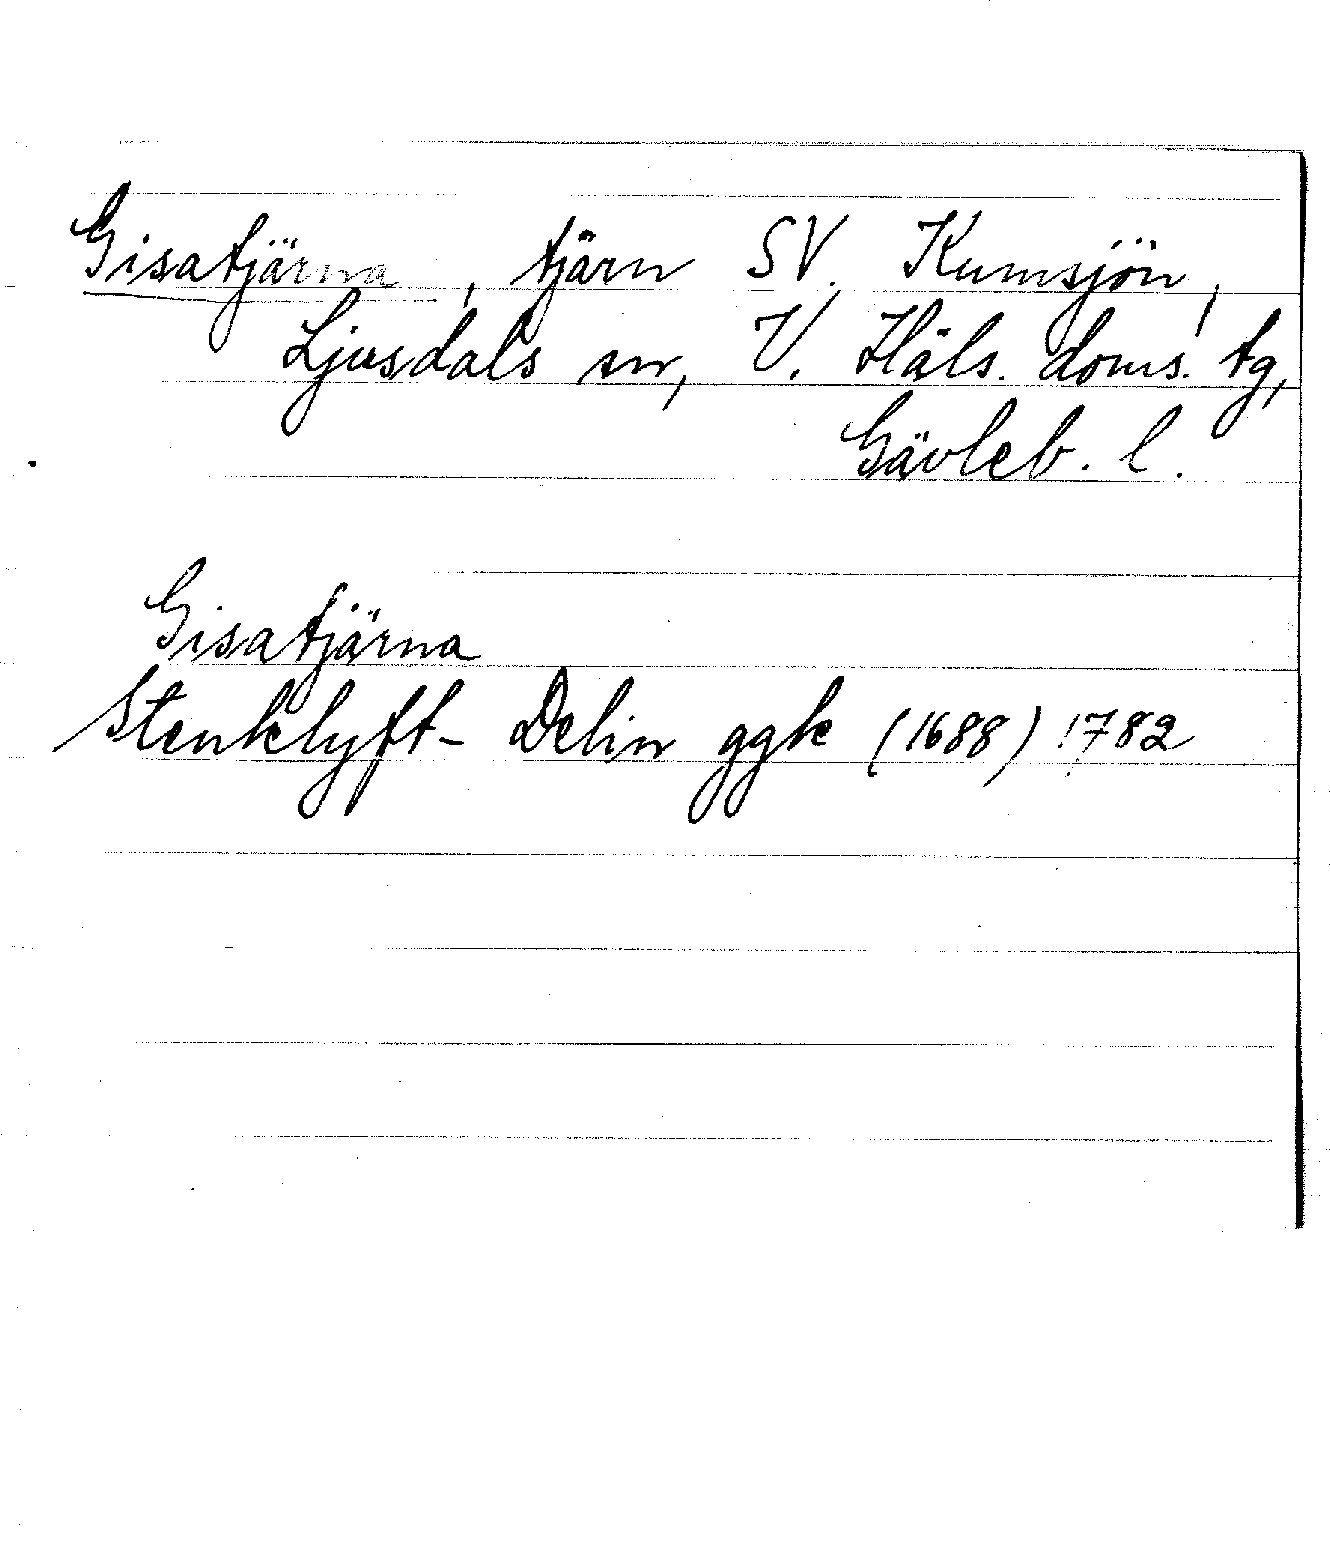 Gisatjärna, tjärn SV. Kumsjön,
Ljusdals sn, V. Häls. doms. tg,
Gävleb. l.
Gisatjärna
Stenklyft- Delin ggk (1688) 1782